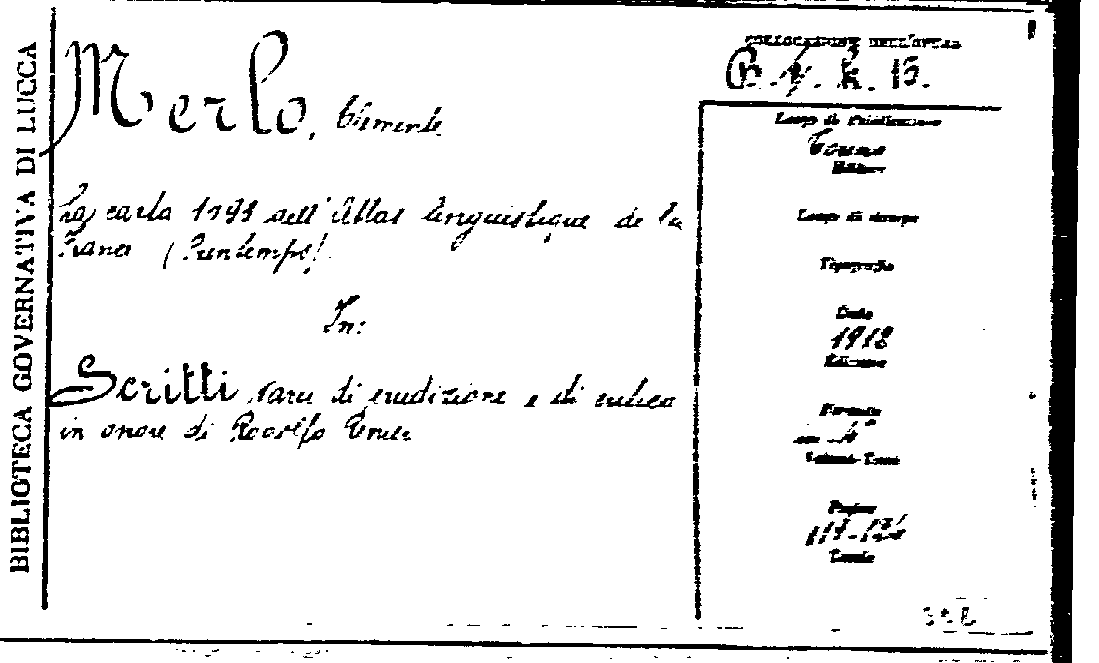 BIBLIOTECA GOVERNATIVA DI LUCCA
Merlo, Clemente
La carta dell'Atlas linguistique de la
(Printemps).
In:
Scritti varii di erudizione e di critica
in onore di Rodolfo Renier
COLLOCAZIONE DELL'OPERA
Luogo di Pubblicazione
Torino
Editore
Luogo di stampa
Tipografia
Data
1912
Edizione
Formato
Pagine
Tavole